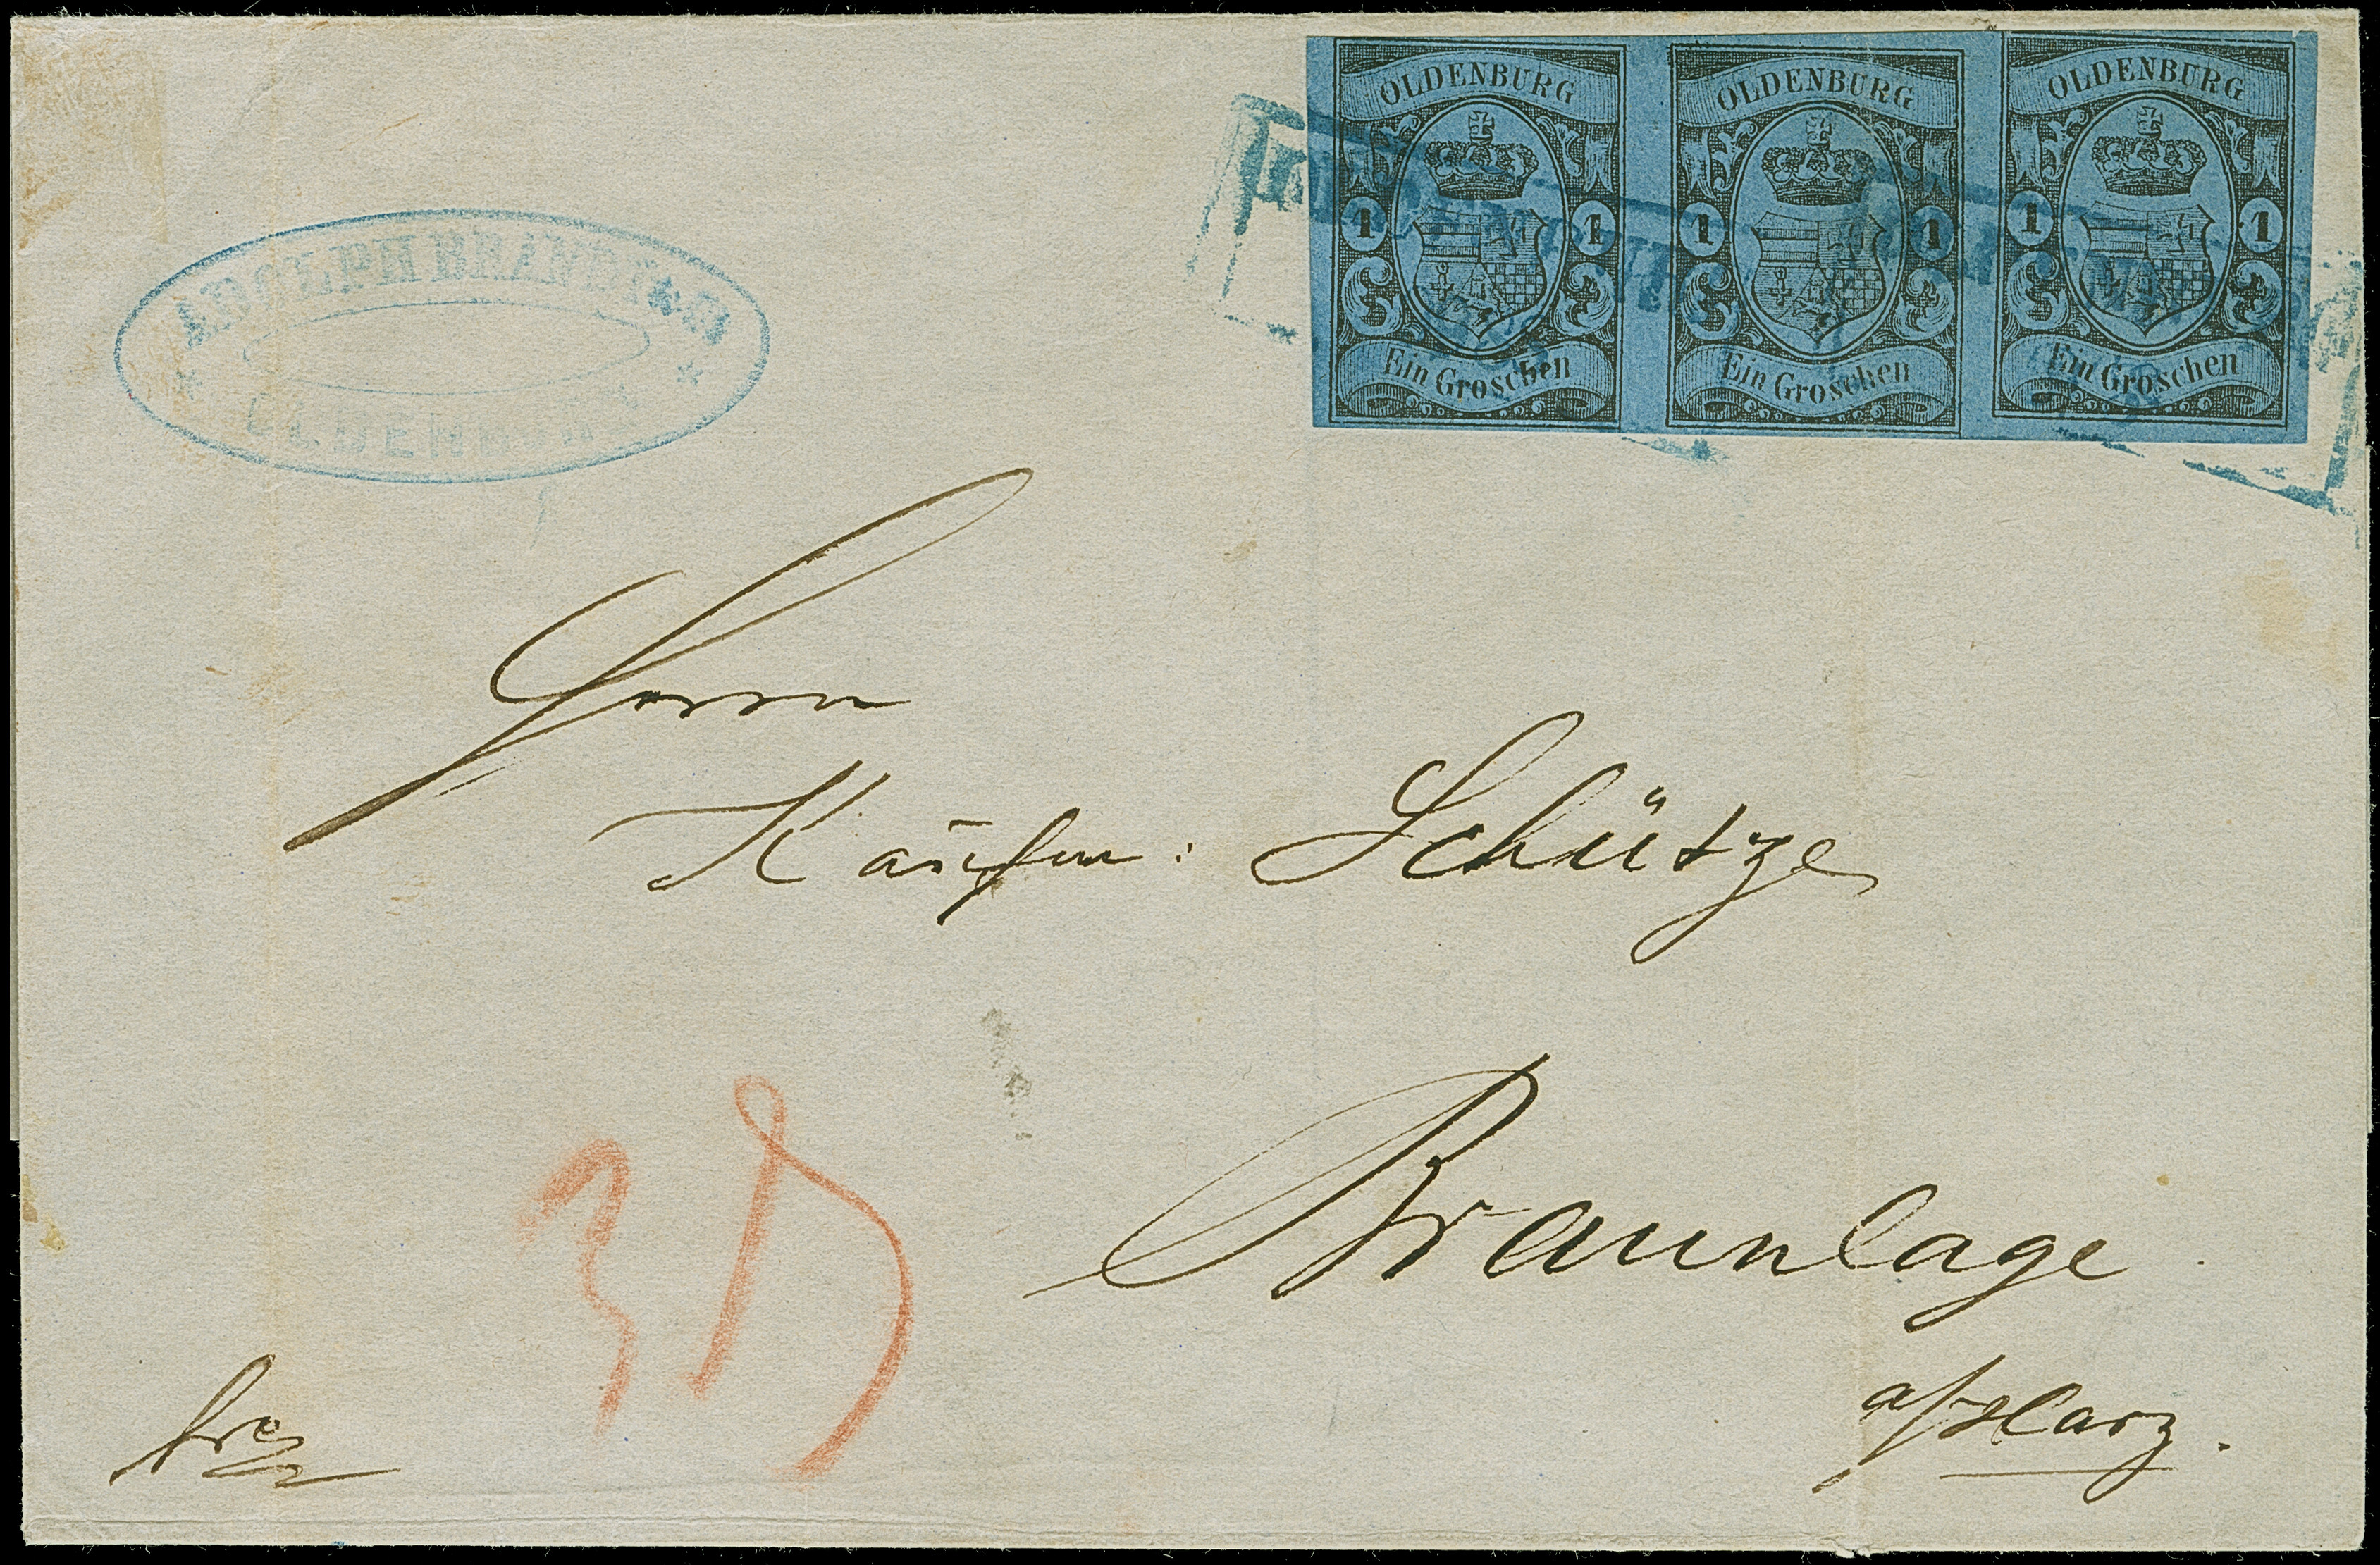 OLDENBURG OLDENBURG OLDENBURG
1 1 1 1 1 1
Ein Groschen Ein Groschen Ein Groschen
ADOLPH
OLDENBURG
Herrn
Kaufm: Schütze
Braunlage
a/Harz.
frco
3